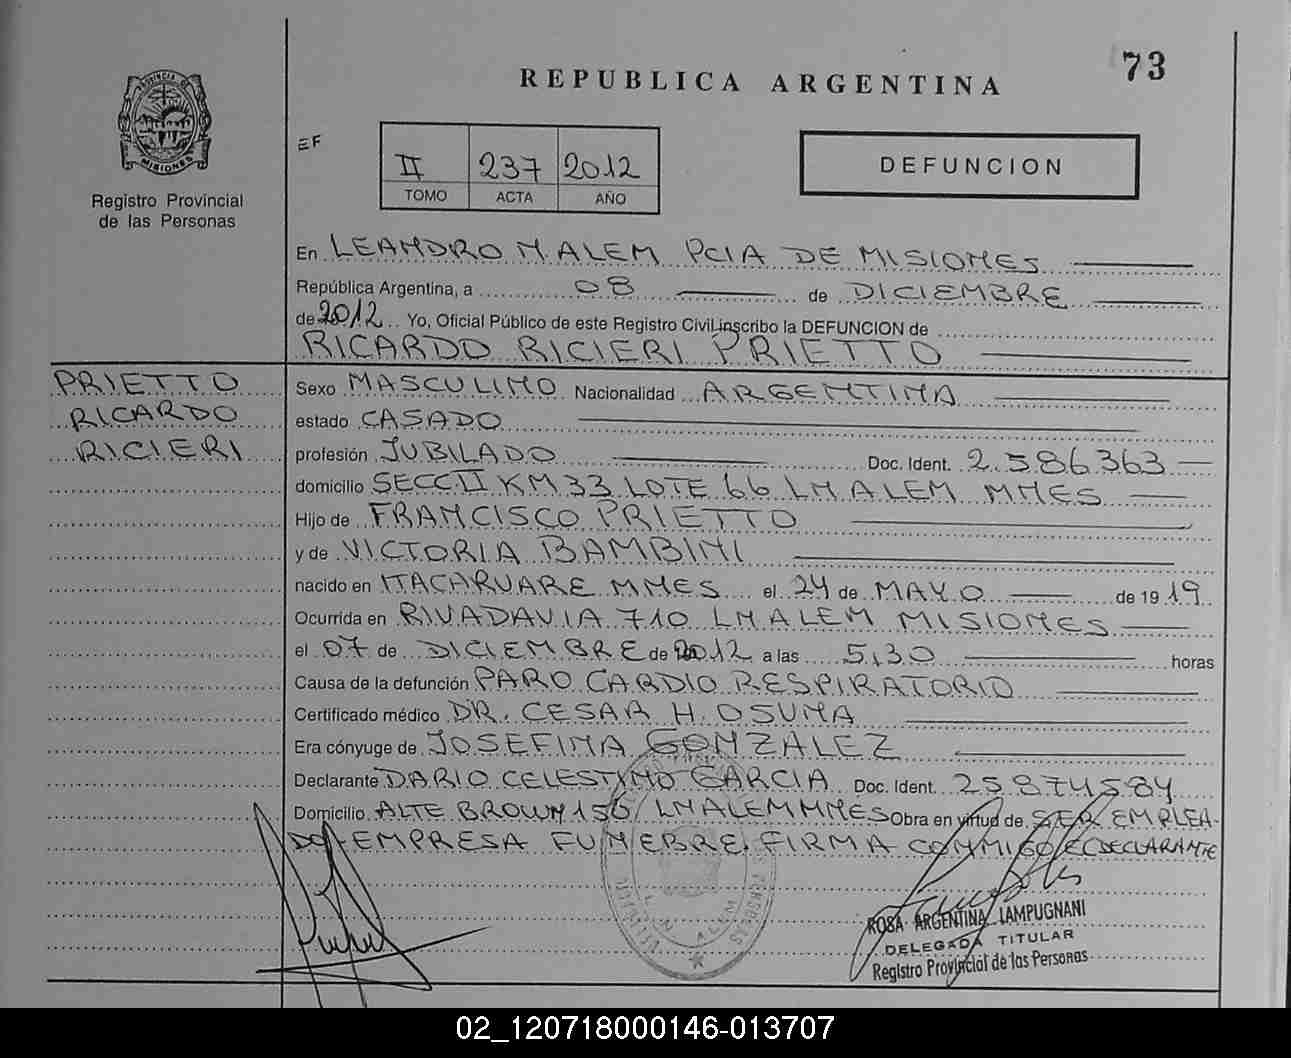 73
REPUBLICA ARGENTINA
PROVINCIA DE
MISIONES
Registro Provincial
de las Personas
EF
II 237 2012
TOMO ACTA AÑO
DEFUNCION
En LEANDRO N. ALEM PCIA DE MISIONES
República Argentina, a 08 de DICIEMBRE
de 2012 Yo, Oficial Público de este Registro Civil inscribo la DEFUNCION de
RICARDO RICIERI PRIETTO
PRIETTO
RICARDO
RICIERI
Sexo MASCULINO Nacionalidad ARGENTINA
estado CASADO
profesión JUBILADO Doc. Ident. 2.586.363
domicilio SECC. II KM 33 LOTE 66 LN ALEM MNES
Hijo de FRANCISCO PRIETTO
y de VICTORIA BAMBINI
nacido en ITACARUARE MNES el 24 de MAYO de 19 19
Ocurrida en RIVADAVIA 710 LN ALEM MISIONES
el 07 de DICIEMBRE de 2012 a las 5,30 horas
Causa de la defunción PARO CARDIO RESPIRATORIO
Certificado médico DR. CESAR H. OSUNA
Era cónyuge de JOSEFINA GONZALEZ
Declarante DARIO CELESTINO GARCIA Doc. Ident. 25.874.584
Domicilio ALTE BROWN 156 LN ALEM MNES Obra en virtud de SER EMPLEA-
DO EMPRESA FUNEBRE. FIRMA CONMIGO EL DECLARANTE
ROSA ARGENTINA LAMPUGNANI
DELEGADA TITULAR
Registro Provincial de las Personas
02_120718000146-013707